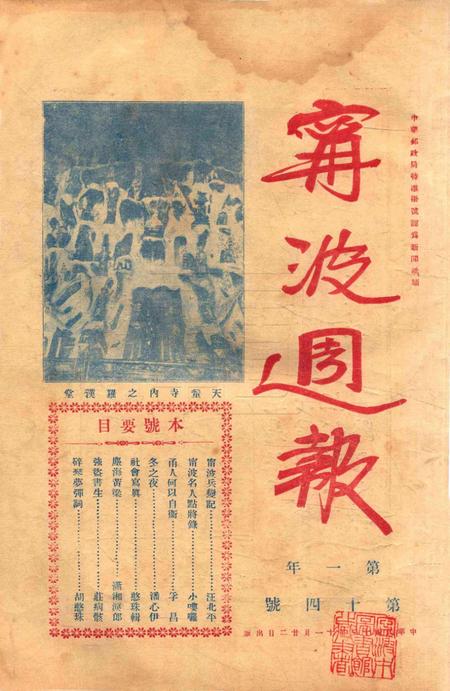 甯波週報
中華郵政局特准掛號認為新聞紙類
天童寺內之羅漢堂
本號要目
甯波兵變記……汪北平
甯波名人點將錄……小嘍囉
甬人何以自衞……孚昌
冬之夜……潘心伊
社會寫眞……憨珠輯
塵海黃粱……瀟湘漁郎
強盜書生……莊病骸
碎琴夢彈詞……胡憨珠
第一年
第十四號
十一月廿二日出版